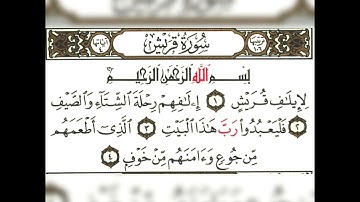 سُورَةُ قُرَيْشٍ
بِسْمِ اللَّهِ الرَّحْمَٰنِ الرَّحِيمِ
لِإِيلَٰفِ قُرَيْشٍ ١ إِۦلَٰفِهِمْ رِحْلَةَ ٱلشِّتَآءِ وَٱلصَّيْفِ
٢ فَلْيَعْبُدُوا۟ رَبَّ هَٰذَا ٱلْبَيْتِ ٣ ٱلَّذِىٓ أَطْعَمَهُم
مِّن جُوعٍ وَءَامَنَهُم مِّنْ خَوْفٍۭ
٤